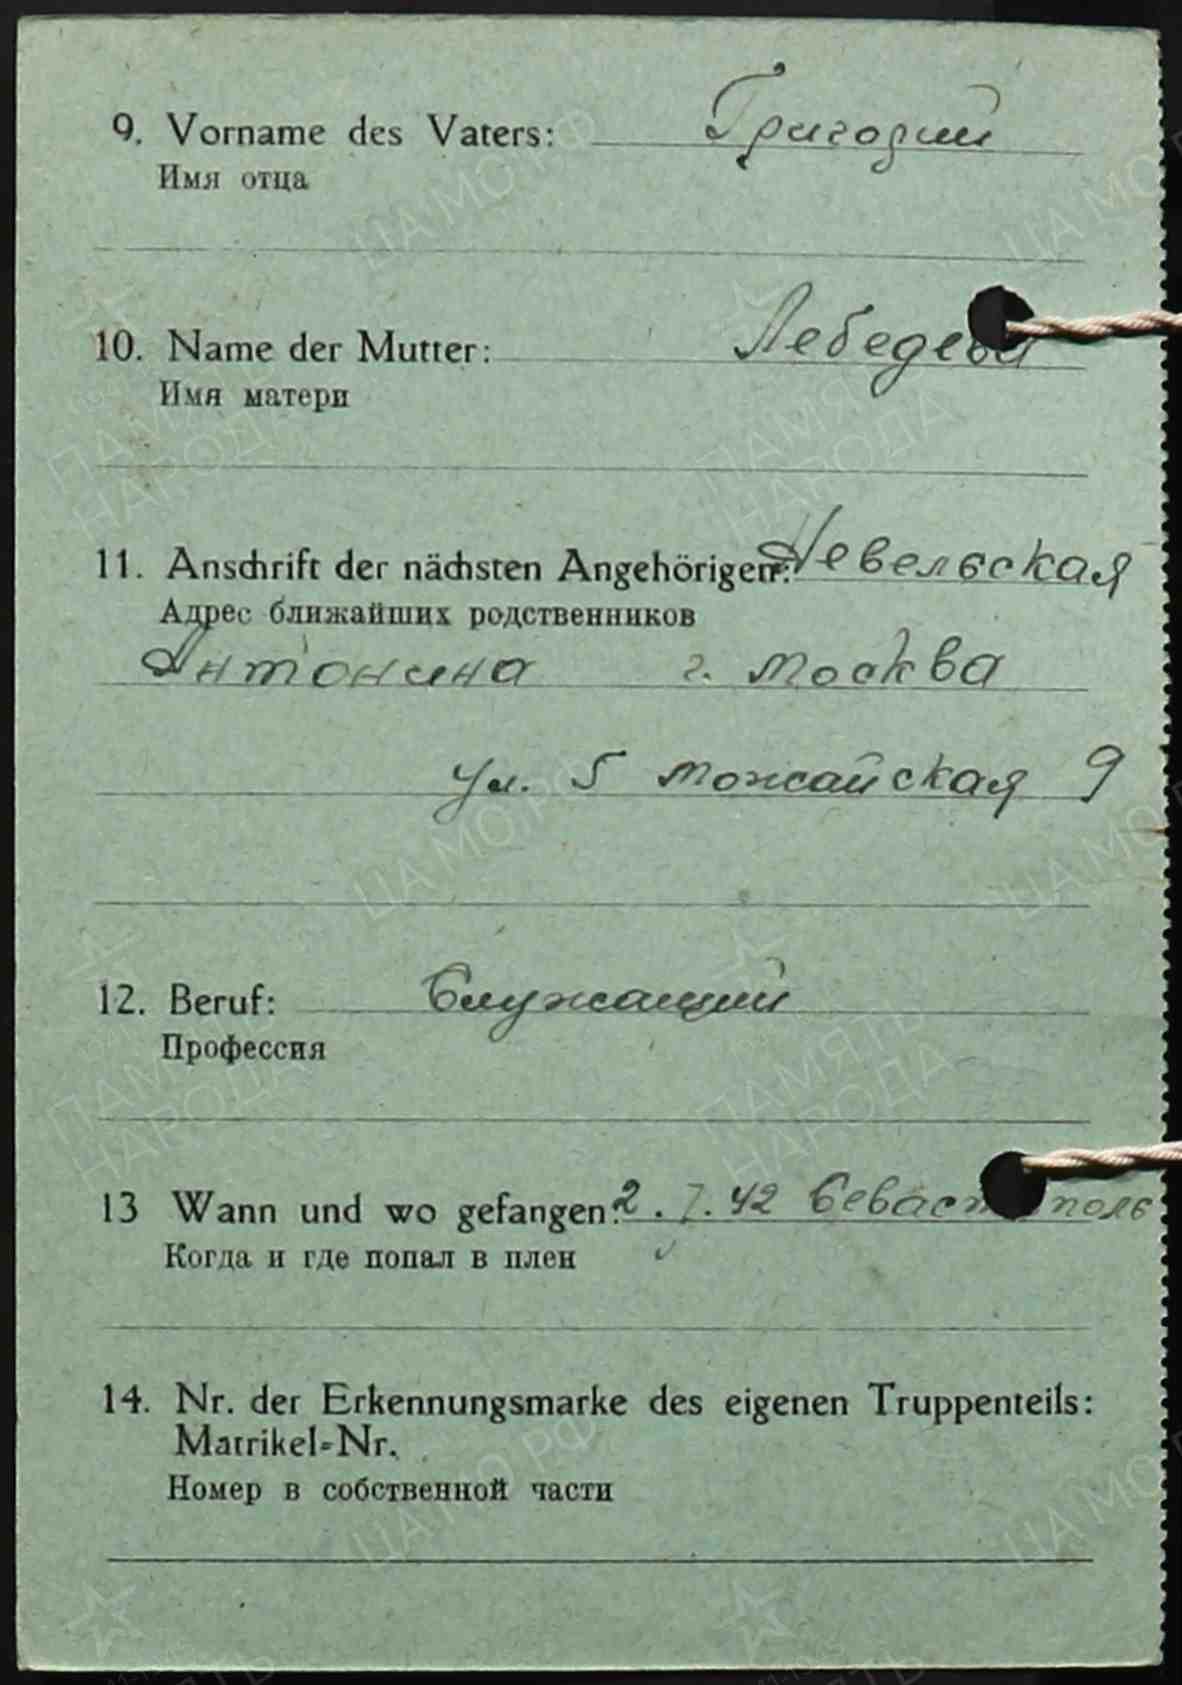 9. Vorname des Vaters: Григорий
Имя отца
10. Name der Mutter: Лебедева
Имя матери
11. Anschrift der nächsten Angehörigen: Невельская
Адрес ближайших родственников
Антонина г. Москва
ул. 5 можайская 9
12. Beruf: Служащий
Профессия
13 Wann und wo gefangen: 2. 7. 42 Севастополь
Когда и где попал в плен
14. Nr. der Erkennungsmarke des eigenen Truppenteils:
Matrikel-Nr.
Номер в собственной части